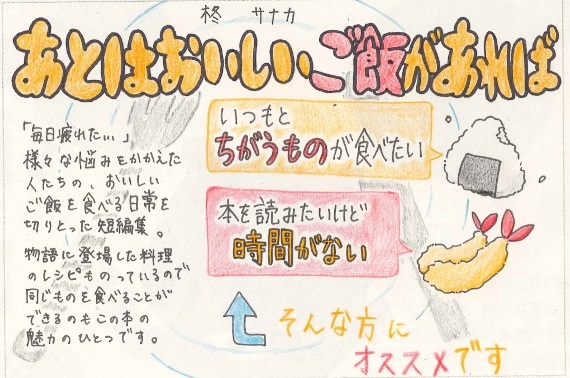 柊 サナカ
あとはおいしいご飯があれば
「毎日疲れた…」
様々な悩みをかかえた
人たちの、おいしい
ご飯を食べる日常を
切りとった短編集。
物語に登場した料理
のレシピものっているので
同じものを食べることが
できるのもこの本の
魅力のひとつです。
いつもと
ちがうものが食べたい
本を読みたいけど
時間がない
そんな方に
オススメです